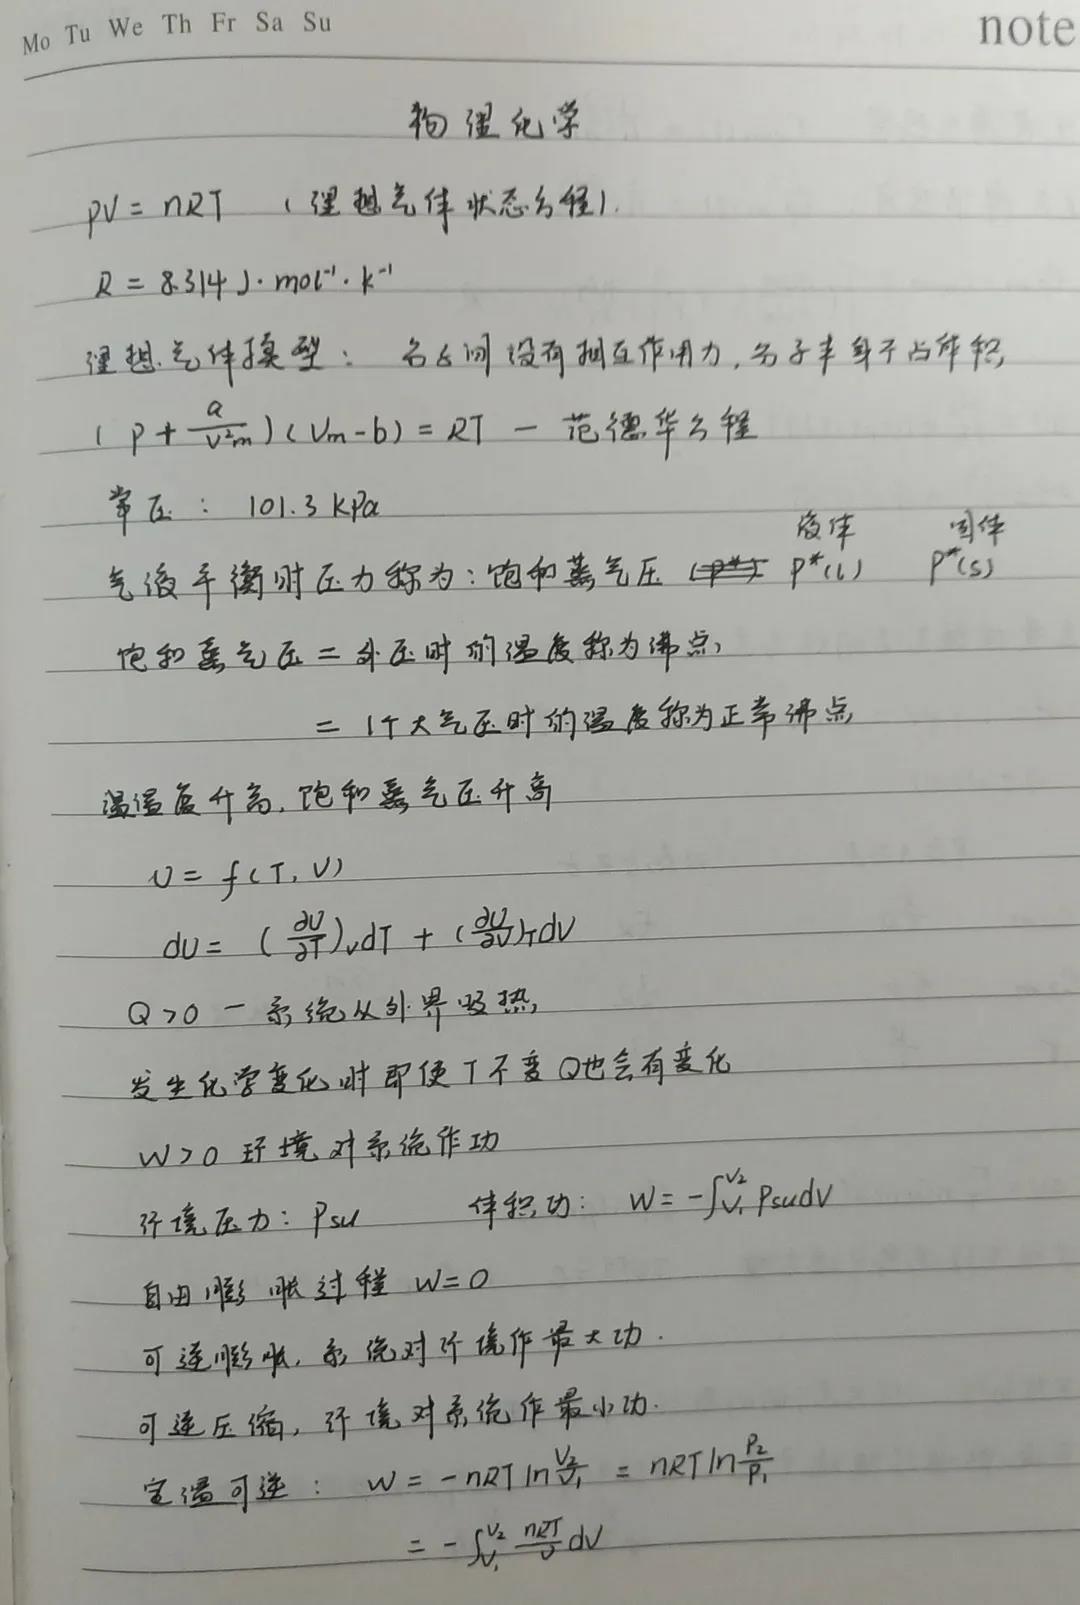 Mo Tu We Th Fr Sa Su
note
物理化学
pV = nRT （理想气体状态方程）.
R = 8.314 J·mol⁻¹·k⁻¹
理想气体模型： 分子间没有相互作用力，分子本身不占体积
( p + a/V²m ) ( Vm - b ) = RT — 范德华方程
常压： 101.3 kPa
液体 固体
气液平衡时压力称为：饱和蒸气压 (p*) p*(l) p*(s)
饱和蒸气压 = 外压时的温度称为沸点，
= 1个大气压时的温度称为正常沸点
温温度升高，饱和蒸气压升高
U = f(T, V)
dU = (∂U/∂T)ᵥdT + (∂U/∂V)ₜdV
Q>0 — 系统从外界吸热，
发生化学变化时即使T不变Q也会有变化
W>0 环境对系统作功
环境压力：Psu 体积功： W = -∫V₁V₂ Psu dV
自由膨胀过程 W=0
可逆膨胀，系统对环境作最大功.
可逆压缩，环境对系统作最小功.
定温可逆： W = -nRT ln V₂/V₁ = nRT ln P₂/P₁
= -∫V₁V₂ nRT/V dV